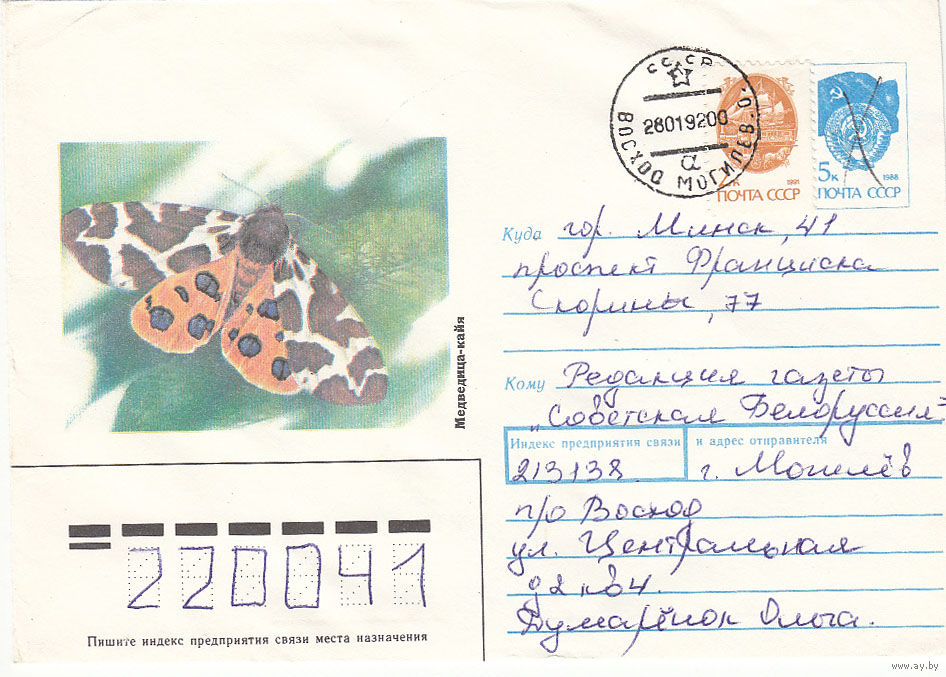 СССР
28019200
ВОСХОД МОГИЛЕВ.О.
α
1991
ПОЧТА СССР
5к
1988
ПОЧТА СССР
Медведица-кайя
Куда гор. Минск, 41
проспект Франциска
Скорины, 77
Кому Редакция газеты
„Советская Белоруссия"
Индекс предприятия связи и адрес отправителя
213138 г. Могилёв
п/о Восход
ул. Центральная
д2 кв4.
Бумарёнок Ольга.
220041
Пишите индекс предприятия связи места назначения
www.ay.by